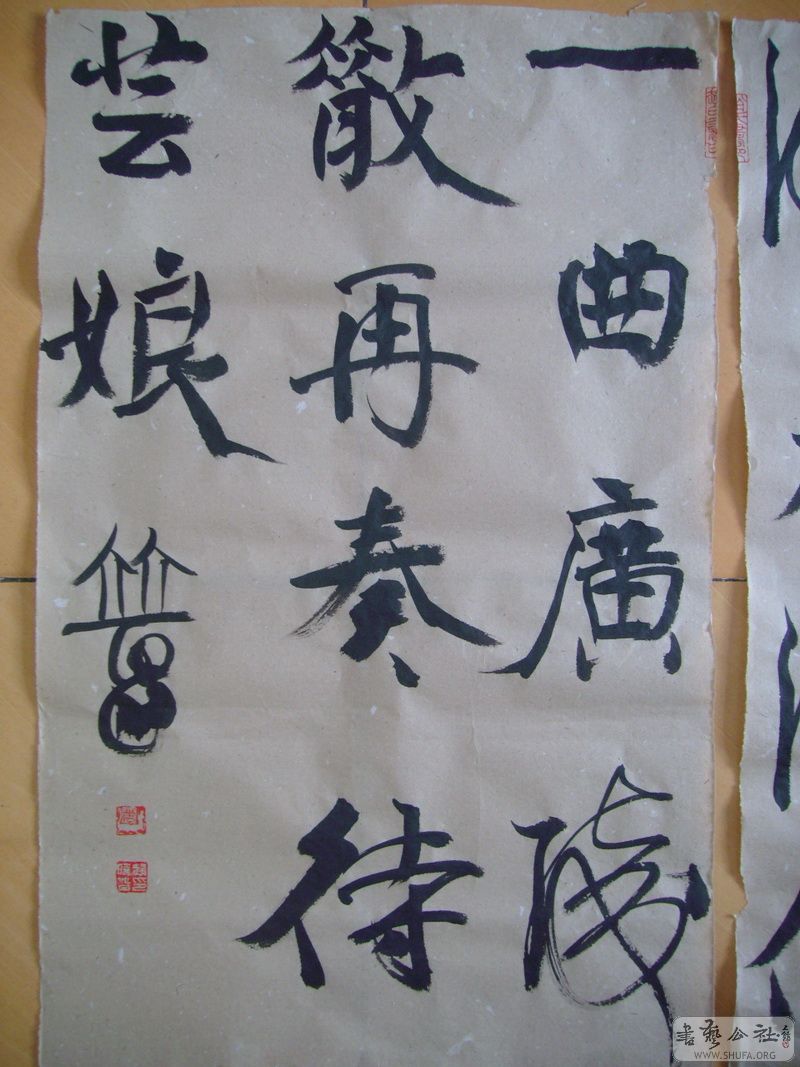 一曲廣陵
散再奏待
芸娘
書藝公社
WWW.SHUFA.ORG